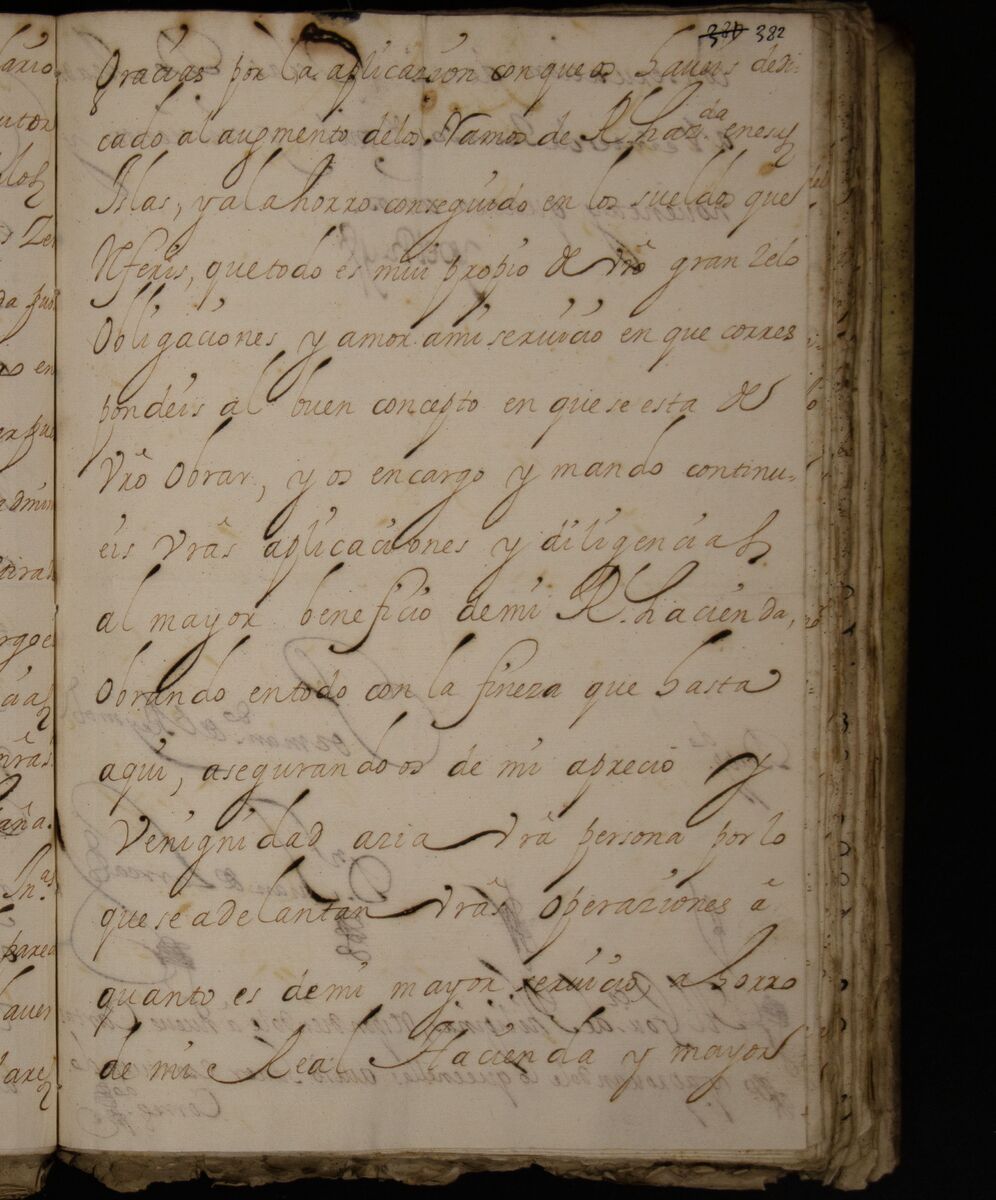 381 382
Gracias por la aplicazion con que os haueis dedi-
cado al augmento delos Ramos de R.l haz.da en esas
Islas, y al ahorro conseguido en los sueldos que
referis, que todo es mui propio de vrõ gran zelo
obligaciones y amor ami seruicio en que corres
pondeis al buen concepto en que se esta de
vrõ obrar, y os encargo y mando continu-
eis vrãs aplicaciones y diligencias
al mayor beneficio de mi R.l hacienda,
obrando en todo con la fineza que hasta
aqui, asegurandoos de mi aprecio y
venignidad azia vrã persona por lo
que se adelantan vrãs operaziones â
quanto es de mi mayor seruicio ahorro
de mi Real Hacienda y mayor